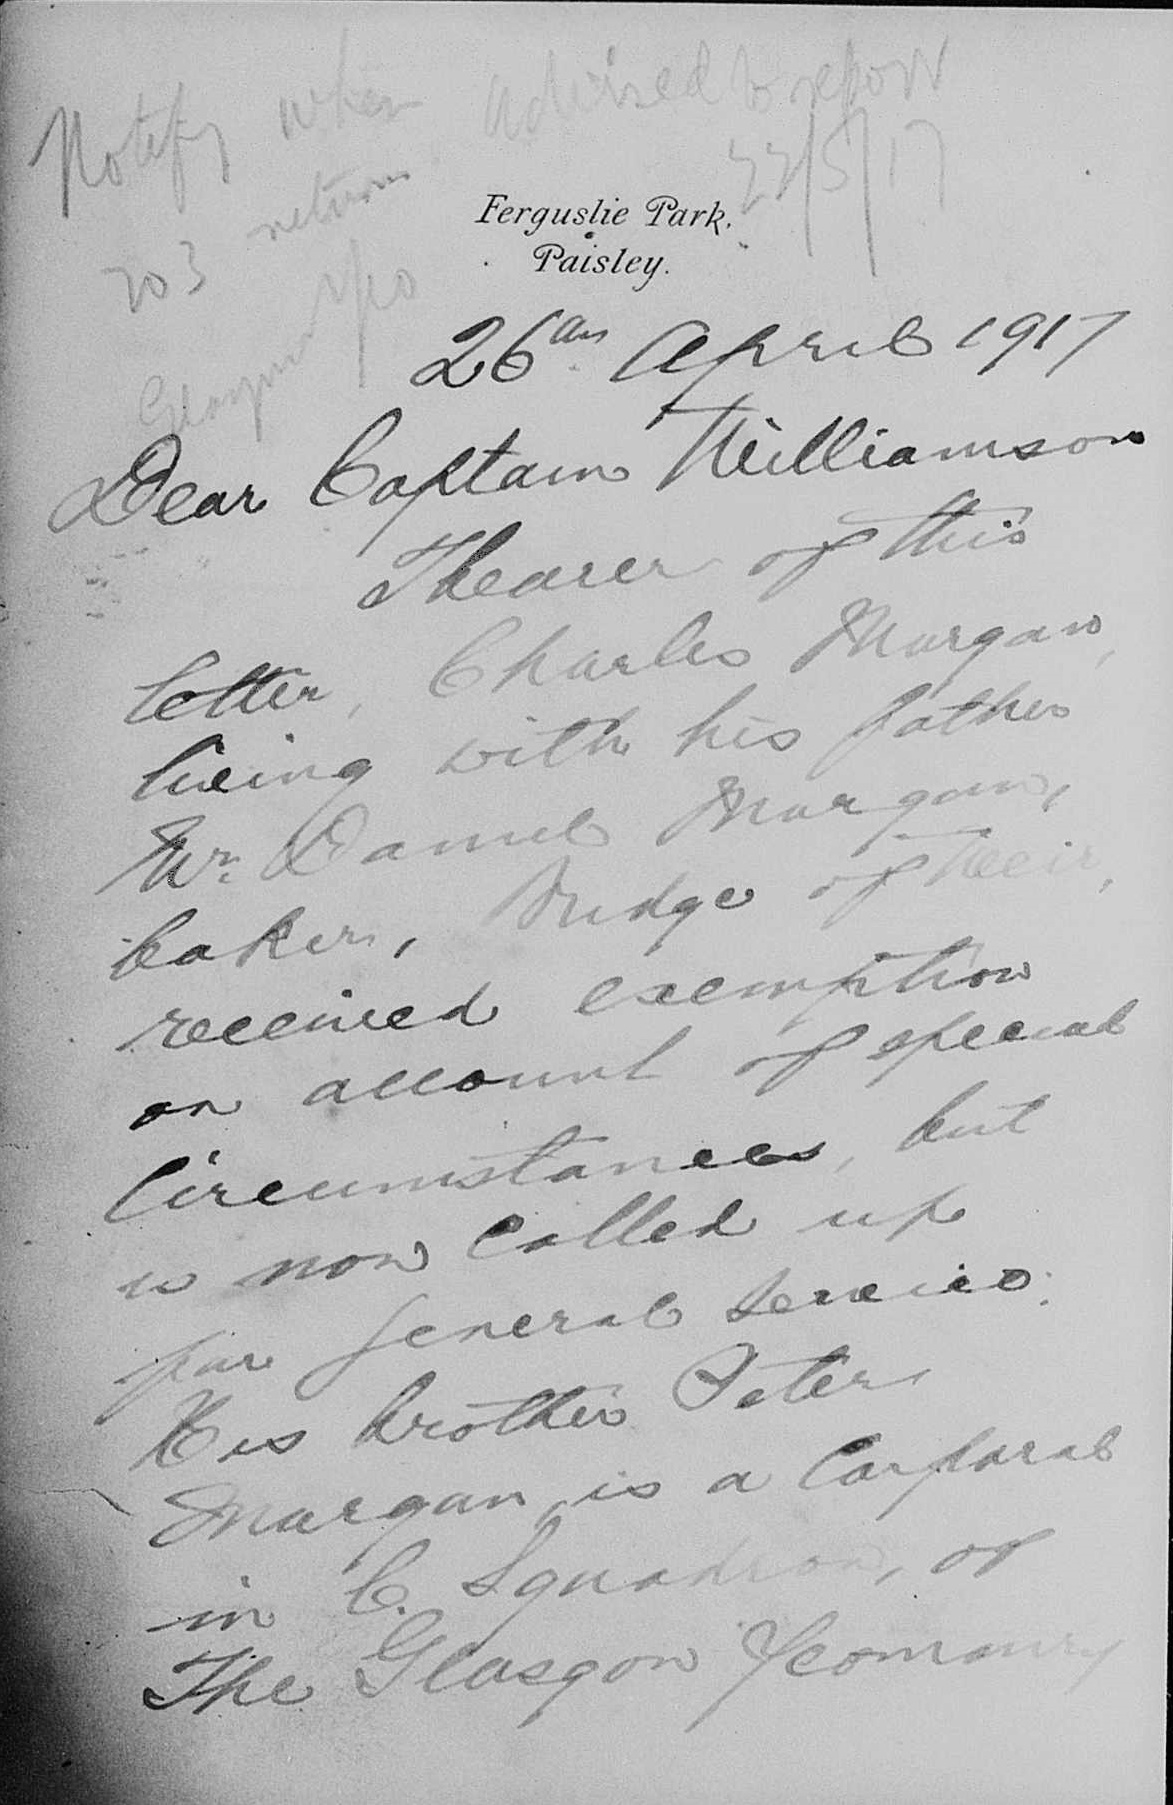 Notify when advised to report
203 return 22/5/17
Glasgow
Ferguslie Park,
Paisley.
26th April 1917
Dear Captain Williamson
The bearer of this
letter, Charles Morgan,
living with his father
Mr. Daniel Morgan,
baker, Bridge of Weir,
received exemption
on account of special
Circumstances, but
is now called up
for General Service.
His brother Peter
Morgan, is a Corporal
in C. Squadron, of
The Glasgow Yeomanry